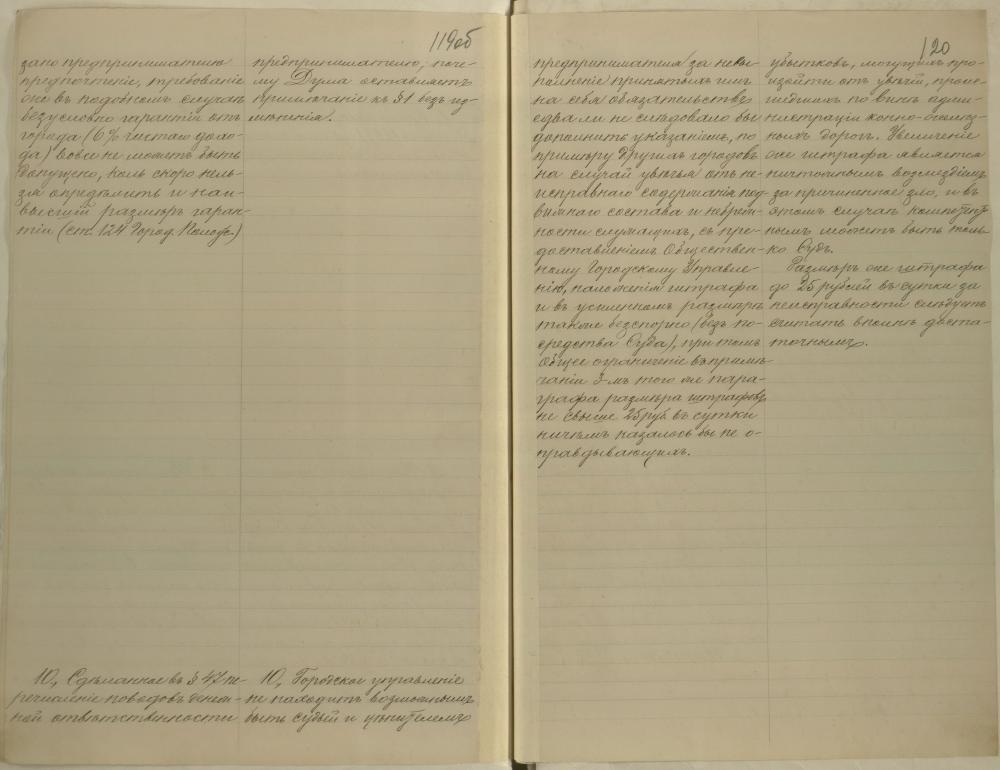 119об
зано предпринимателю
предпочтеніе, требованіе
же въ подобномъ случаѣ
безусловно гарантіи отъ
города (6% чистаго дохо-
да) вовсе не можетъ быть
допущено, коль скоро нель-
зя опредѣлить и наи-
высшій размѣръ гаран-
тіи (ст. 124 Город. Полож.)
предпринимателю, поче-
му Дума оставляетъ
примѣчаніе къ § 1 безъ из-
мѣненія.
10, Сдѣланное въ § 47 пе-
речисленіе поводовъ денеж-
ной отвѣтственности
10, Городское управленіе
не находитъ возможнымъ
быть судьей и цѣнителемъ
120
предпринимателя за невы-
полненіе принятыхъ имъ
на себя обязательствъ
едва ли не слѣдовало бы
дополнить указаніемъ, по
примѣру другихъ городовъ
на случай увѣчья отъ не-
исправнаго содержанія под-
вижнаго состава и небреж-
ности служащихъ, съ пре-
доставленіемъ Обществен-
ному Городскому Управле-
нію, наложенія штрафа
и въ усиленномъ размѣрѣ
такъ безспорно (безъ по-
средства Суда), при томъ
общее ограниченіе въ примѣ-
чаніи 3-мъ того же пара-
графа размѣра штрафовъ
не свыше 25 руб. въ сутки
ничѣмъ казалось бы не о-
правдывающимъ.
убытковъ, могущихъ про-
изойти отъ увѣчій, проис-
шедшихъ по винѣ адми-
нистраціи конно-желѣз-
ныхъ дорогъ. Увеличеніе
же штрафа является
ничтожнымъ возмездіемъ
за причиненное зло, и въ
этомъ случаѣ компетент-
нымъ можетъ быть толь-
ко Судъ.
Размѣръ же штрафа
до 25 рублей въ сутки за
неисправности слѣдуетъ
считать вполнѣ доста-
точнымъ.